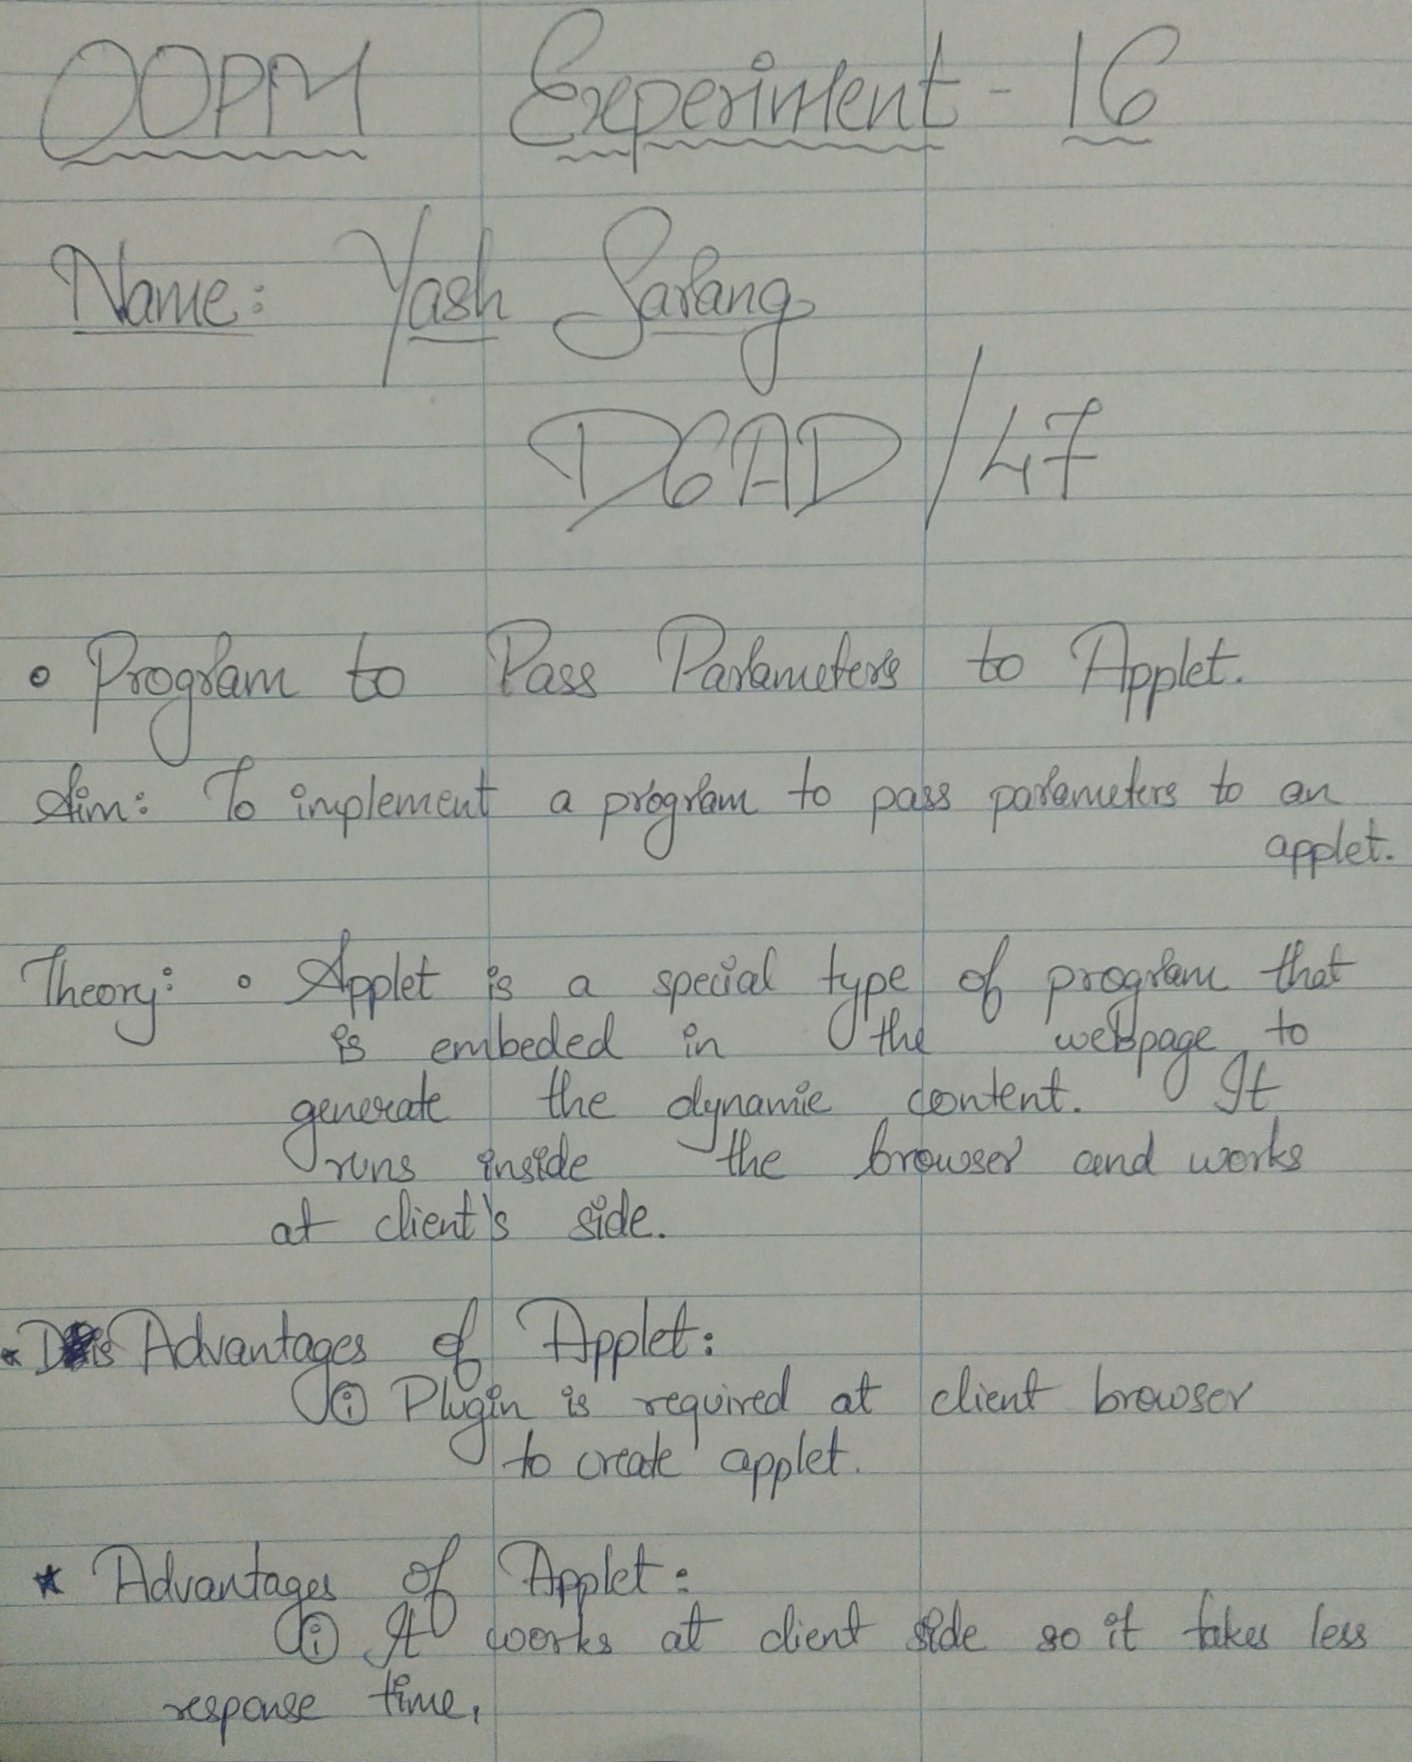 OOPM Experiment - 16
Name: Yash Sarang
D6AD/47
• Program to Pass Parameters to Applet.
Aim: To implement a program to pass parameters to an
applet.
Theory: • Applet is a special type of program that
is embeded in the webpage to
generate the dynamic content. It
runs inside the browser and works
at client's side.
* DisAdvantages of Applet:
(i) Plugin is required at client browser
to create applet.
* Advantages of Applet:
(i) It works at client side so it takes less
response time,